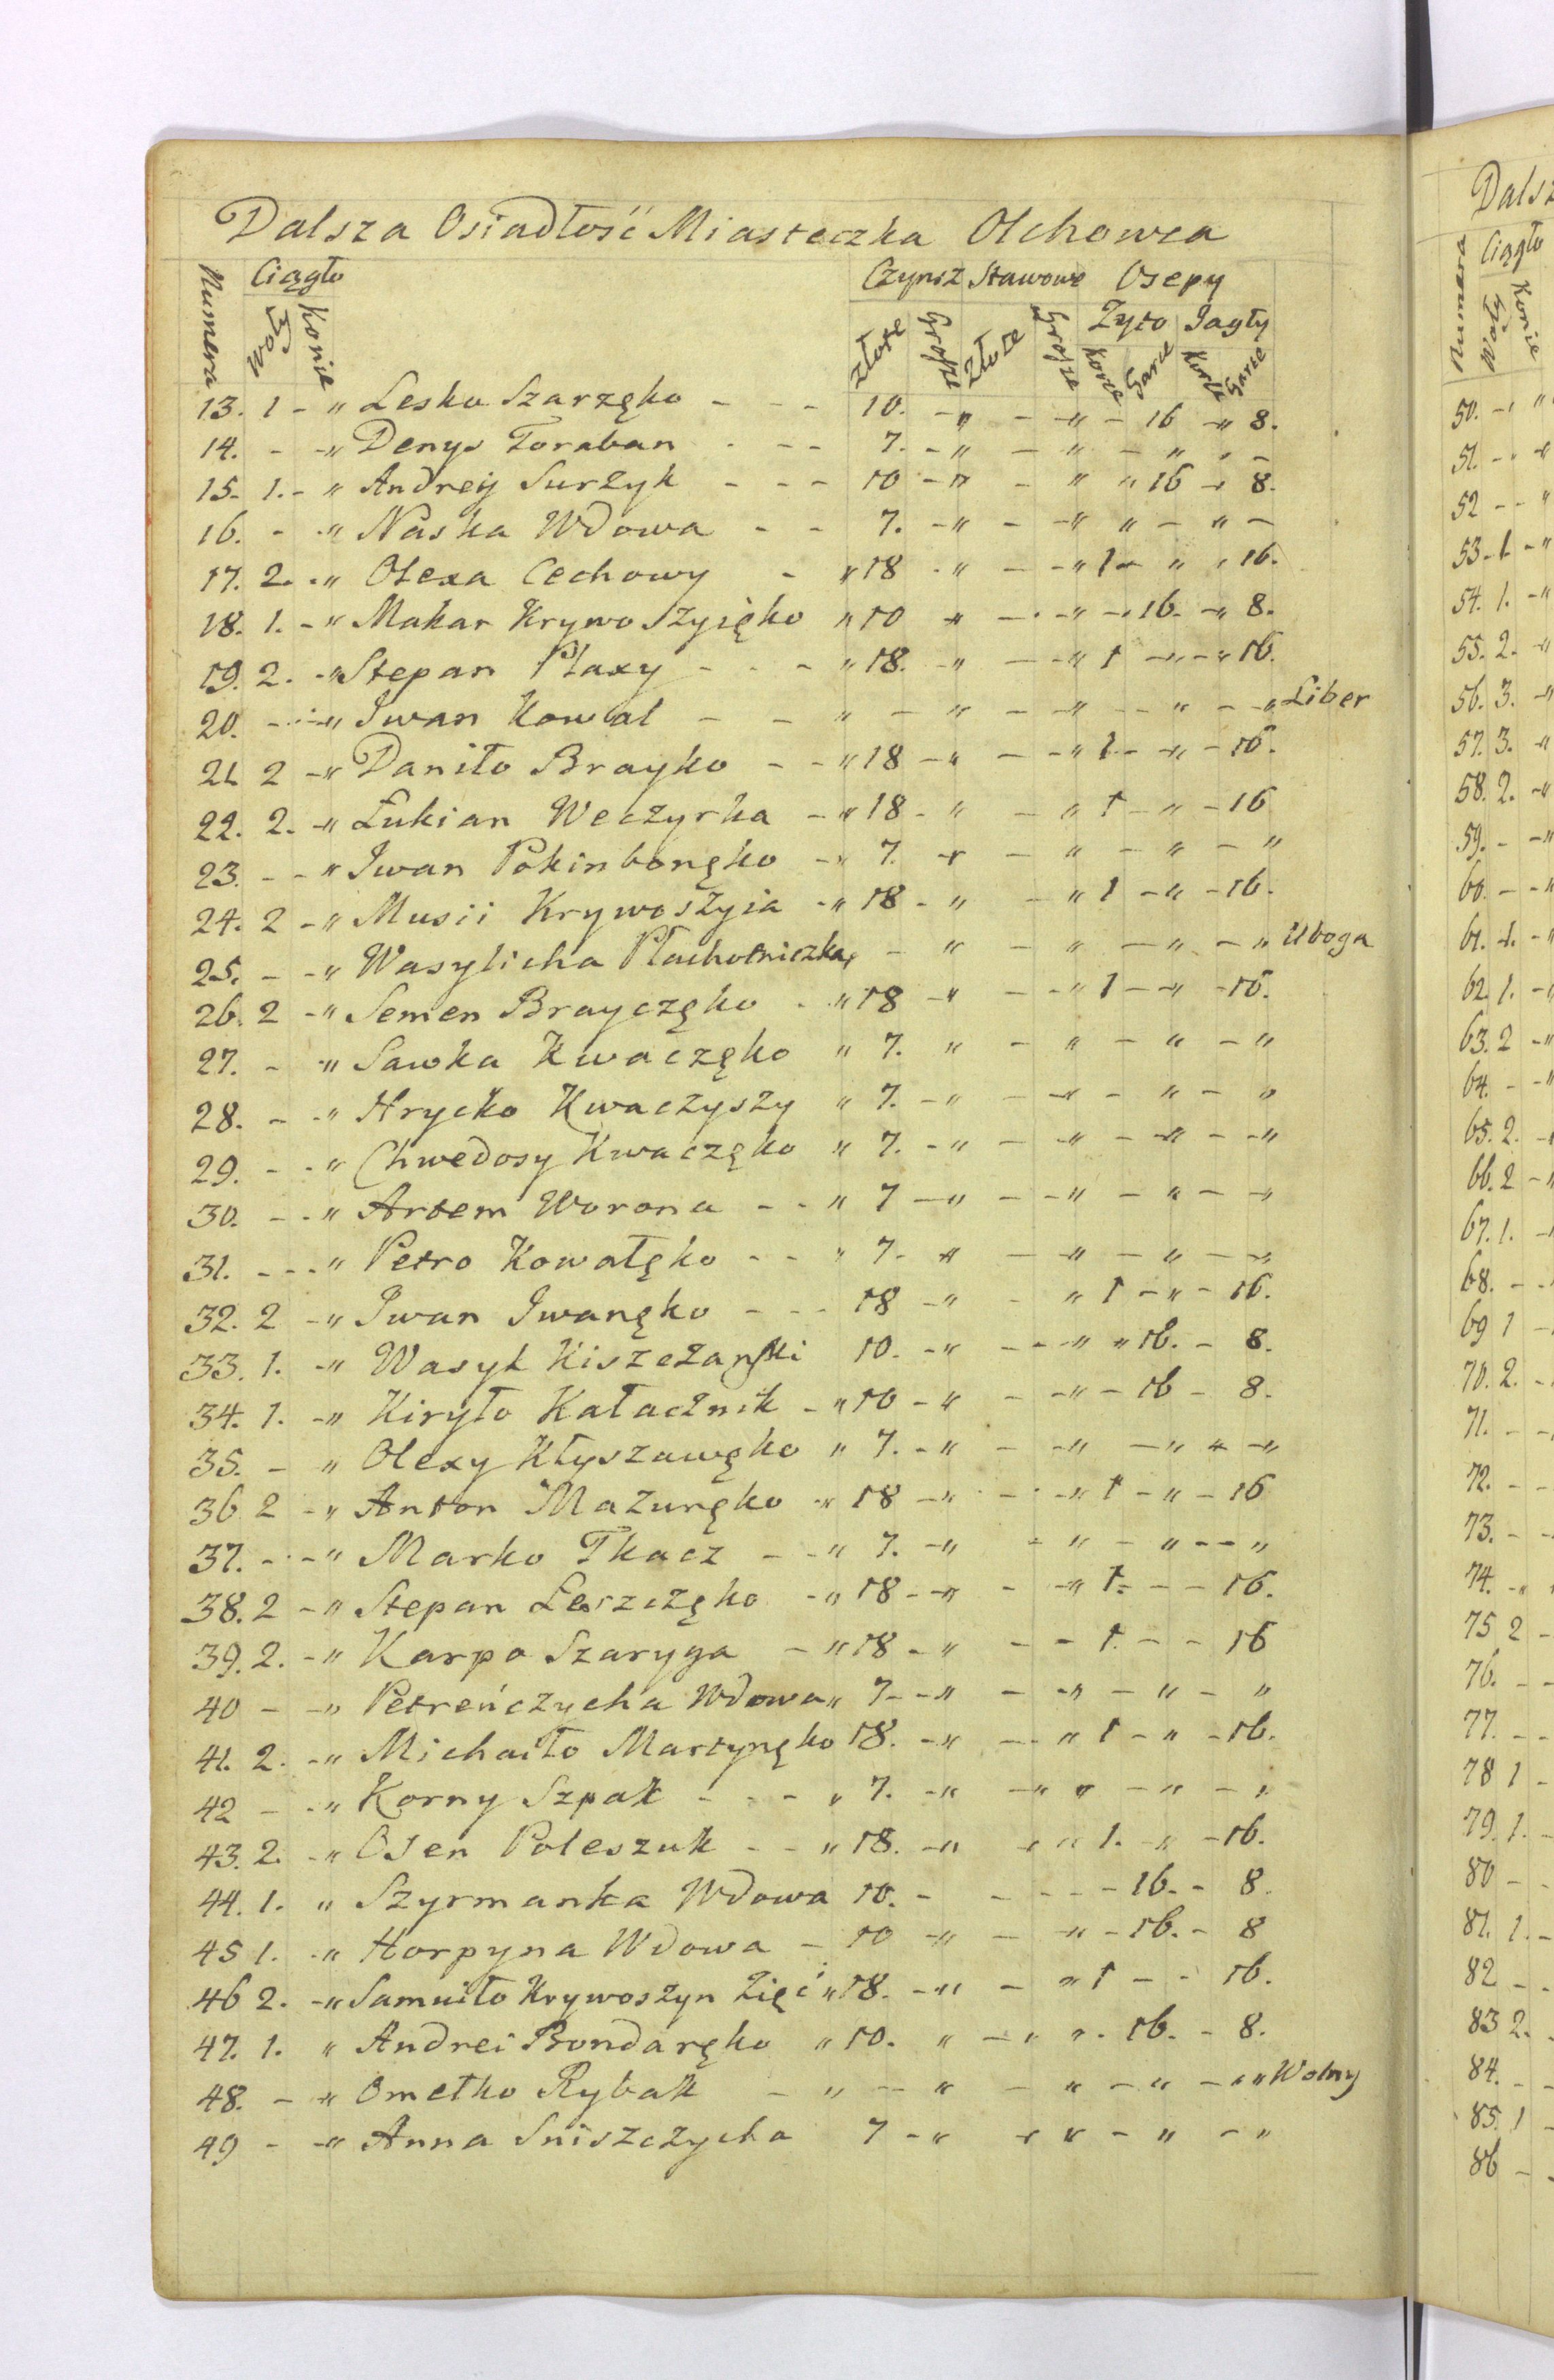 Dalsza Osiadłość Miasteczka Olchowca
Numera Ciągło Czynsz Stawowe Osepy
Woły Konie Złote Grosze Złote Grosze Żyto Jagły
Korce Garce Korce Garce
13. 1 - " Lesko Szarzęko - - - 10. - " - " - 16 - " 8.
14. - - " Denys Toraban - - - 7. - " - " - " " -
15. 1. - " Andreij Surżyk - - - 10 - " - " " 16 - 8.
16. - - " Naska Wdowa - - 7. - " - " " - " -
17. 2. - " Olexa Cechowy - " 18 - " - - " 1 - " " 16.
18. 1. - " Makar Krywoszyięko " 10 " - - " - 16. - " 8.
19. 2. - " Stepan Płaxy - - - " 18. - " - - " 1 - " - " 16.
20. - - " Iwan Kowal - - " - " - " - - " - - " Liber
21. 2 - " Daniło Brayko - - " 18 - " - - " 1 - - " - 16.
22. 2. - " Łukian Weczyrka - " 18 - " - " 1 - " - 16
23. - - " Iwan Pokinbonęko - " 7. - " - " - " - "
24. 2 - " Musii Krywoszyia - " 18 - " - " 1 - " - 16.
25. - - " Wasylicha Płachotniczka - " - " - " - " Uboga
26. 2 - " Semen Brayczęko - " 18 - " - - " 1 - " - 16.
27. - " Sawka Kwaczęko " 7. " - " - " - "
28. - - " Hrycko Kwaczyszy " 7. - " - " - " - "
29. - - " Chwedosy Kwaczęko " 7. - " - " - " - - "
30. - - " Artem Worona - - " 7 - " - - " - " - "
31. - - - " Petro Kowałęko - - " 7. " - " - " - "
32. 2 - " Iwan Iwanęko - - - 18 - " - " 1 - " - 16.
33. 1. - " Wasyl Kiszczański 10. - " - - " " 16. - 8.
34. 1. - " Kiryło Kałacznik - " 10 - " - - " - 16 - 8.
35. - " Olexy Kłyszawęko " 7. - " - - " - " " - "
36. 2 - " Anton Mazuręko " 18 - " - - " 1 - " - 16
37. - - " Marko Tkacz - - " 7. - " - " - " - - "
38. 2 - " Stepan Leszczęko - " 18 - " - - " 1. - - 16.
39. 2. - " Karpo Szaryga - " 18 - " - - 1. - - 16
40 - - " Petreńczycha Wdowa " 7. - " - " - " - "
41. 2. - " Michaiło Martynęko 18. - " - " 1 - " - 16.
42 - - " Korny Szpak - - - " 7. - " - " " - " - "
43. 2. - " Osen Poleszuk - - " 18. - " - " 1. - " - 16.
44. 1. " Szyrmanka Wdowa 10. - - - - - 16. - 8.
45 1. - " Horpyna Wdowa - 10 - " - " - 16. - 8
46 2. - " Samuiło Krywoszyn Zięć " 18. - " - " 1 - - 16.
47. 1. " Andrei Bondaręko " 10. " - " " - 16. - 8.
48. - " Omelko Rybak - " - " - " - " - " " Wolny
49 - - " Anna Sniszczycha 7 - " " " - " - "
Dalsz
Numera Ciągło
Woły Konie
50. - "
51. - "
52 - - "
53. 1. - "
54. 1. - "
55. 2. - "
56. 3. - "
57. 3. - "
58. 2. - "
59. - - "
60. - - "
61. 1. - "
62. 1. - "
63. 2 - "
64. - - "
65. 2. -
66. 2 - "
67. 1. -
68. - -
69 1 -
70. 2. -
71. - -
72. - -
73. - -
74. - "
75 2 -
76. - -
77. - -
78 1 -
79. 1. -
80 - -
81. 1. -
82 - -
83 2. -
84. - -
85. 1 -
86 - -